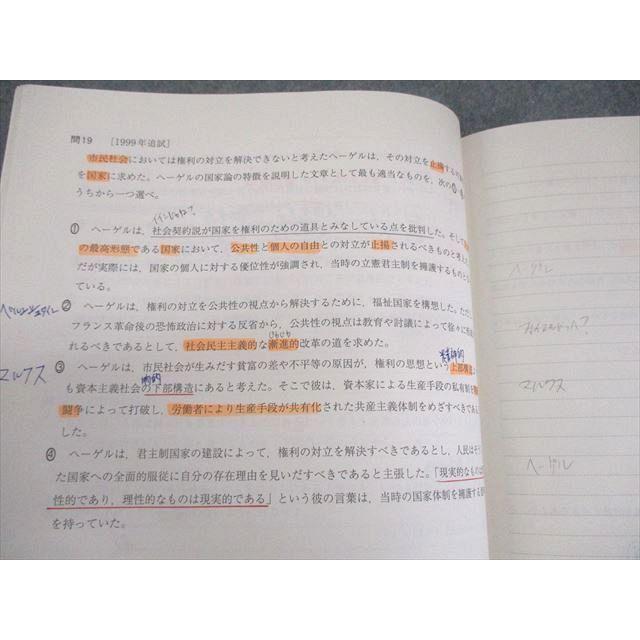 問19 [1999年追試]
市民社会においては権利の対立を解決できないと考えたヘーゲルは、その対立を止揚する
を国家に求めた。ヘーゲルの国家論の特徴を説明した文章として最も適当なものを、次の
うちから一つ選べ。
① ヘーゲルは、社会契約説が国家を権利のための道具とみなしている点を批判した。そして
の最高形態である国家において、公共性と個人の自由との対立が止揚されるべきものと考え
だが実際には、国家の個人に対する優位性が強調され、当時の立憲君主制を擁護するものと
ている。
② ヘーゲルは、権利の対立を公共性の視点から解決するために、福祉国家を構想した。ただ
フランス革命後の恐怖政治に対する反省から、公共性の視点は教育や討議によって徐々に
れるべきであるとして、社会民主主義的な漸進的改革の道を求めた。
じわじわ
マルクス
③ ヘーゲルは、市民社会が生みだす貧富の差や不平等の原因が、権利の思想という上部構造
も資本主義社会の下部構造にあると考えた。そこで彼は、資本家による生産手段の私有制を
闘争によって打破し、労働者により生産手段が共有化された共産主義体制をめざすべきである
した。
④ ヘーゲルは、君主制国家の建設によって、権利の対立を解決すべきであるとし、人民はそう
た国家への全面的服従に自分の存在理由を見いだすべきであると主張した。「現実的なものは
性的であり、理性的なものは現実的である」という彼の言葉は、当時の国家体制を擁護する
を持っていた。
ヘーゲル
マルクス
ヘーゲル